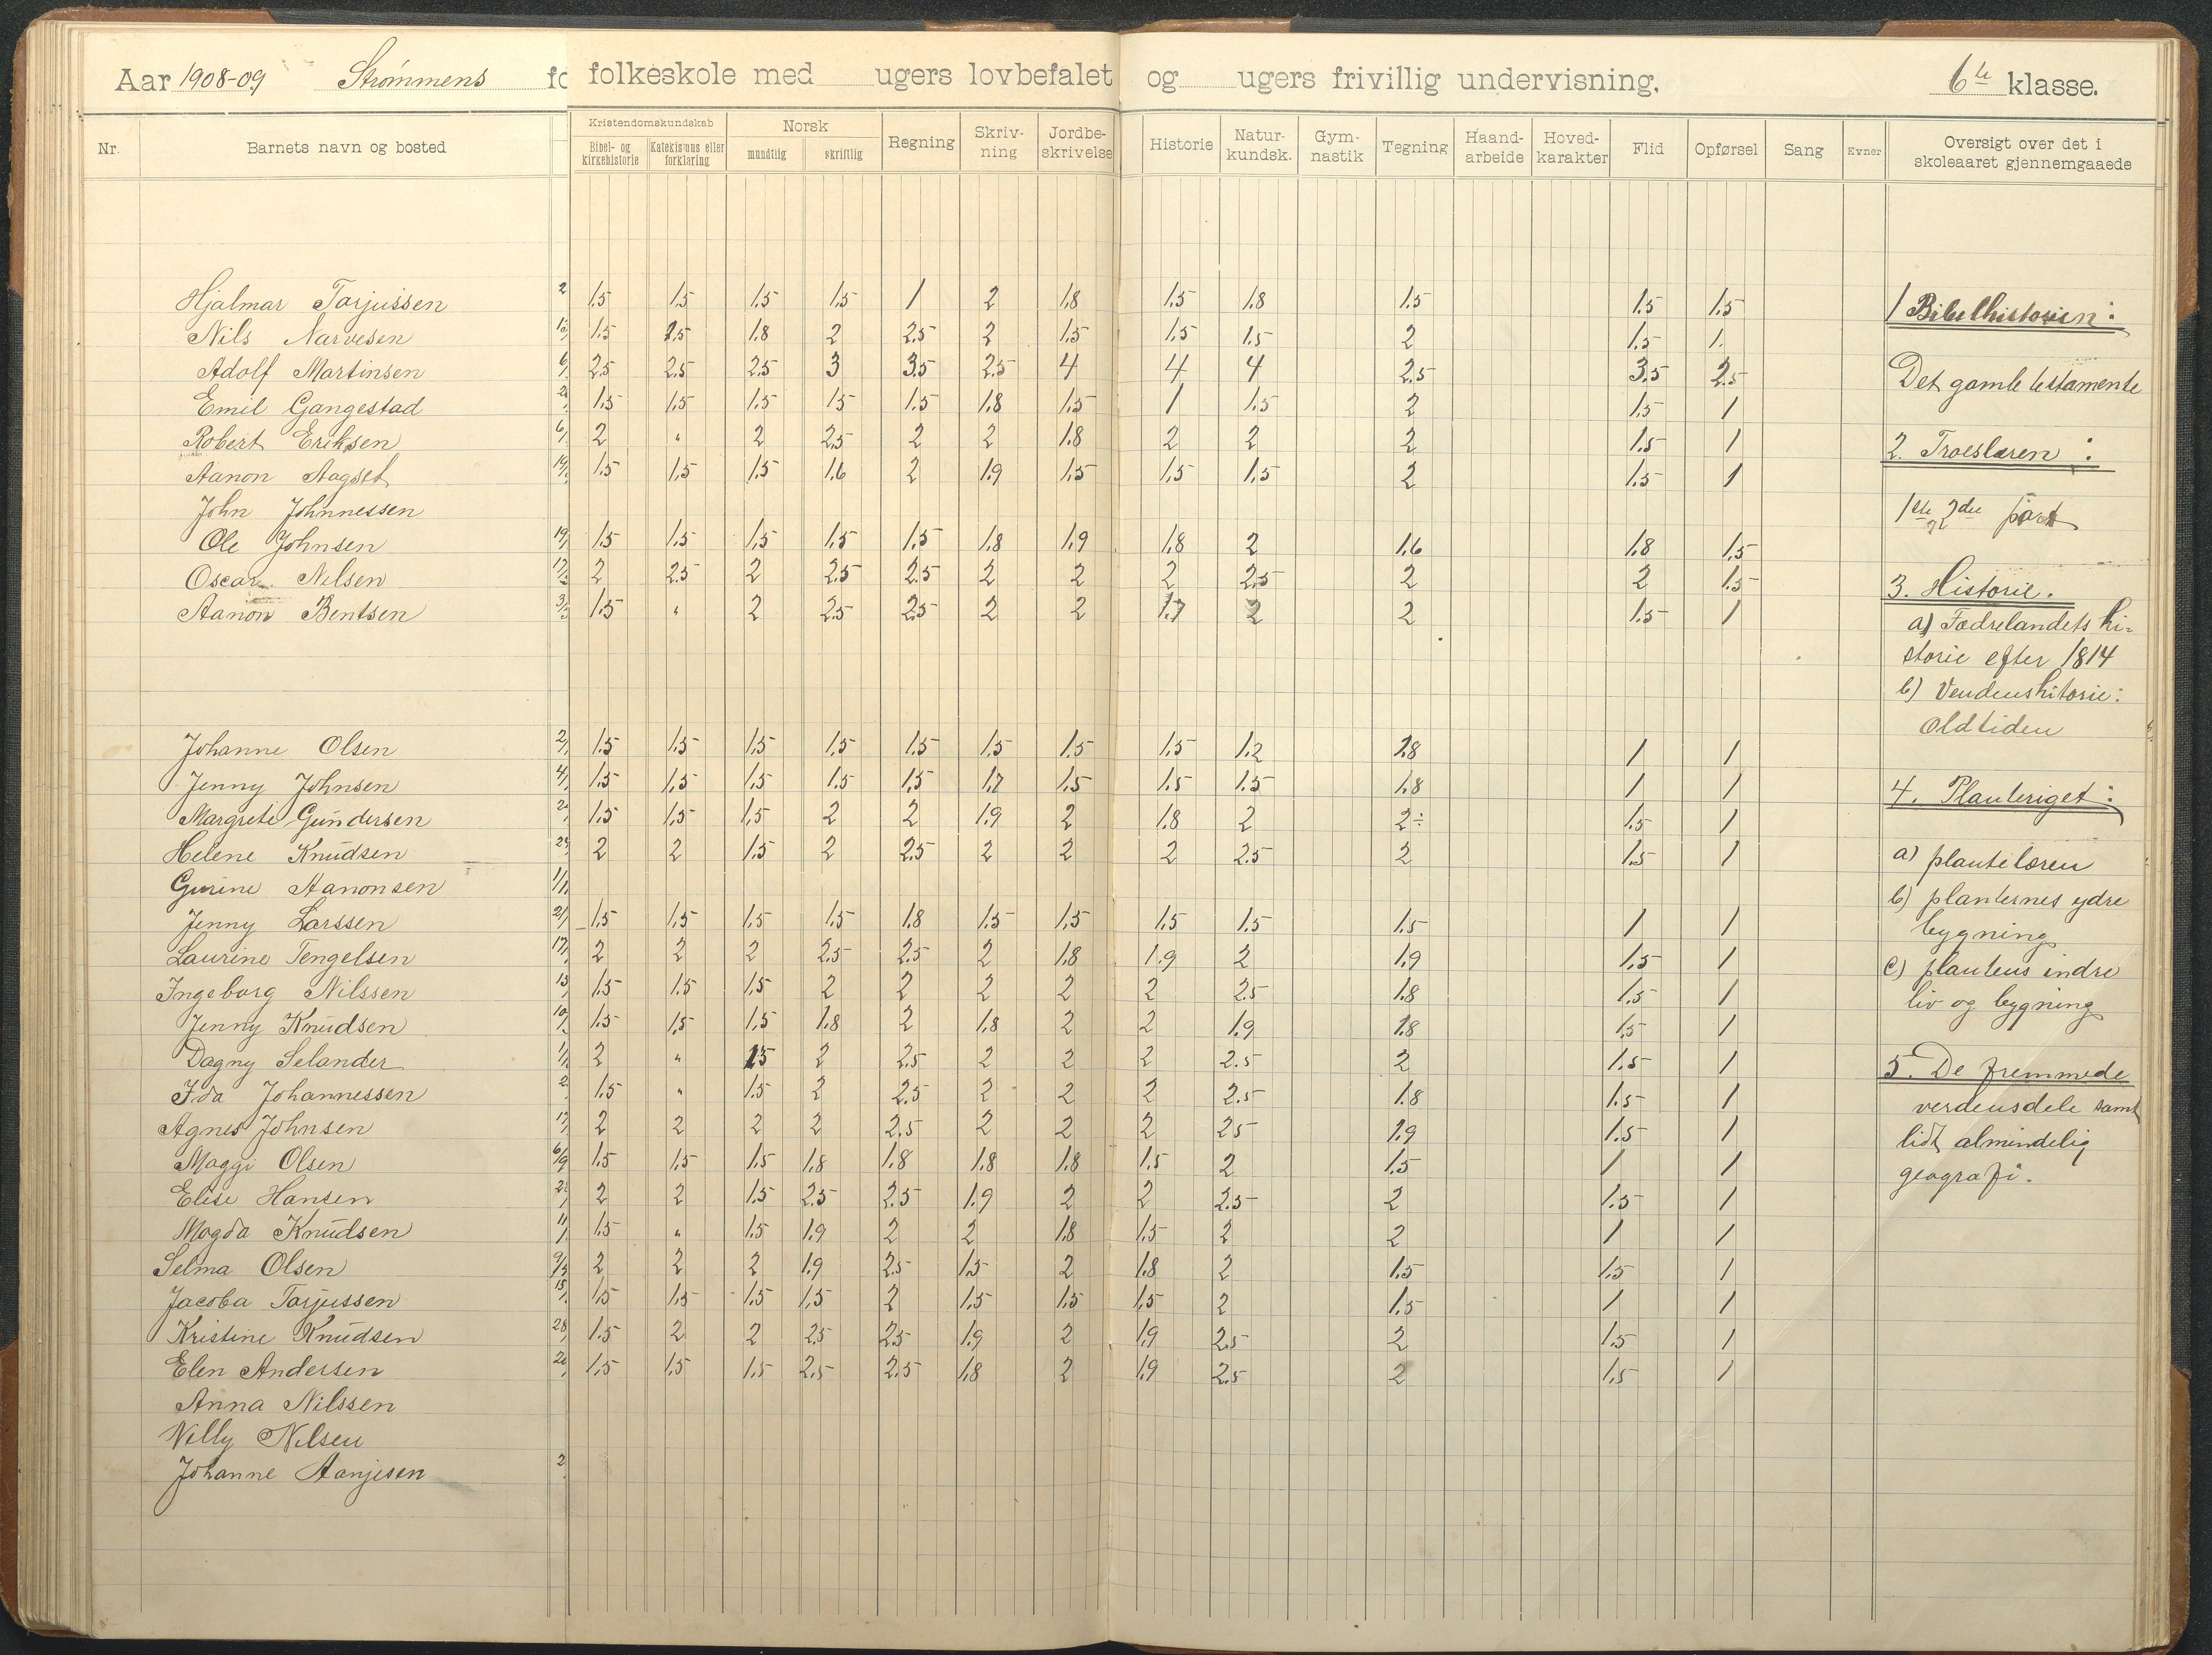 Aar 1908-09 Strømmens fo folkeskole med ugers lovbefalet og ugers frivillig undervisning. 6te klasse.
Nr. Barnets navn og bosted Kristendomskundskab Bibel- og kirkehistorie Katekismus eller forklaring Norsk mundtlig skriftlig Regning Skriv-ning Jordbe-skrivelse Historie Natur-kundsk. Gym-nastik Tegning Haand-arbeide Hoved-karakter Flid Opførsel Sang Evner Oversigt over det i skoleaaret gjennemgaaede
Hjalmar Tarjussen 2 1.5 1.5 1.5 1.5 1 2 1.8 1.5 1.8 1.5 1.5 1.5
Nils Narvesen 1.5 2.5 1.8 2 2.5 2 1.5 1.5 1.5 2 1.5 1.
Adolf Martinsen 6/ 2.5 2.5 2.5 3 3.5 2.5 4 4 4 2.5 3.5 2.5
Emil Gangestad 1.5 1.5 1.5 1.5 1.5 1.8 1.5 1 1.5 2 1.5 1
Robert Eriksen 6/ 2 " 2 2.5 2 2 1.8 2 2 2 1.5 1
Aanon Aagset 1.5 1.5 1.5 1.6 2 1.9 1.5 1.5 1.5 2 1.5 1
John Johnnessen
Ole Johnsen 19/ 1.5 1.5 1.5 1.5 1.5 1.8 1.9 1.8 2 1.6 1.8 1.5
Oscar Nilsen 2 2.5 2 2.5 2.5 2 2 2 2.5 2 2 1.5
Aanon Bentsen 1.5 " 2 2.5 2.5 2 2 1.7 2 2 1.5 1
Johanne Olsen 2/ 1.5 1.5 1.5 1.5 1.5 1.5 1.5 1.5 1.2 1.8 1 1
Jenny Johnsen 4/ 1.5 1.5 1.5 1.5 1.5 1.7 1.5 1.5 1.5 1.8 1 1
Margrete Gundersen 1.5 1.5 1.5 2 2 1.9 2 1.8 2 2÷ 1.5 1
Helene Knudsen 2 2 1.5 2 2.5 2 2 2 2.5 2 1.5 1
Gurine Aanonsen 1/11
Jenny Larssen 21/ 1.5 1.5 1.5 1.5 1.8 1.5 1.5 1.5 1.5 1.5 1 1
Laurine Tengelsen 17/ 2 2 2 2.5 2.5 2 1.8 1.9 2 1.9 1.5 1
Ingeborg Nilssen 13 1.5 1.5 1.5 2 2 2 2 2 2.5 1.8 1.5 1
Jenny Knudsen 10/ 1.5 1.5 1.5 1.8 2 1.8 2 2 1.9 1.8 1.5 1
Dagny Selander 2 " 1.5 2 2.5 2 2 2 2.5 2 1.5 1
Ida Johannessen 2 1.5 " 1.5 2 2.5 2 2 2 2.5 1.8 1.5 1
Agnes Johnsen 17/ 2 2 2 2 2.5 2 2 2 2.5 1.9 1.5 1
Maggi Olsen 6/9 1.5 1.5 1.5 1.8 1.8 1.8 1.8 1.5 2 1.5 1 1
Elise Hansen 2 2 1.5 2.5 2.5 1.9 2 2 2.5 2 1.5 1
Magda Knudsen 11/ 1.5 " 1.5 1.9 2 2 1.8 1.5 2 2 1 1
Selma Olsen 9/3 2 2 2 1.9 2.5 1.5 2 1.8 2 1.5 1.5 1
Jacoba Tarjussen 1.5 1.5 1.5 1.5 2 1.5 1.5 1.5 2 1.5 1 1
Kristine Knudsen 28/ 1.5 2 2 2.5 2.5 1.9 2 1.9 2.5 2 1.5 1
Elen Andersen 1.5 1.5 1.5 2.5 2.5 1.8 2 1.9 2.5 2 1.5 1
Anna Nilssen
Villy Nilsen
Johanne Aanjesen 2
1 Bibelhistorien:
Det gamle testamente
2. Troeslæren:
1ste 2den part
3. Historie.
a) Fædrelandets hi-
storie efter 1814
b) Verdenshitorie:
Oldtiden
4. Planteriget:
a) plantelæren
b) planternes ydre
bygning
c) plantens indre
liv og bygning
5. De fremmede
verdensdele samt
lidt almindelig
geografi.